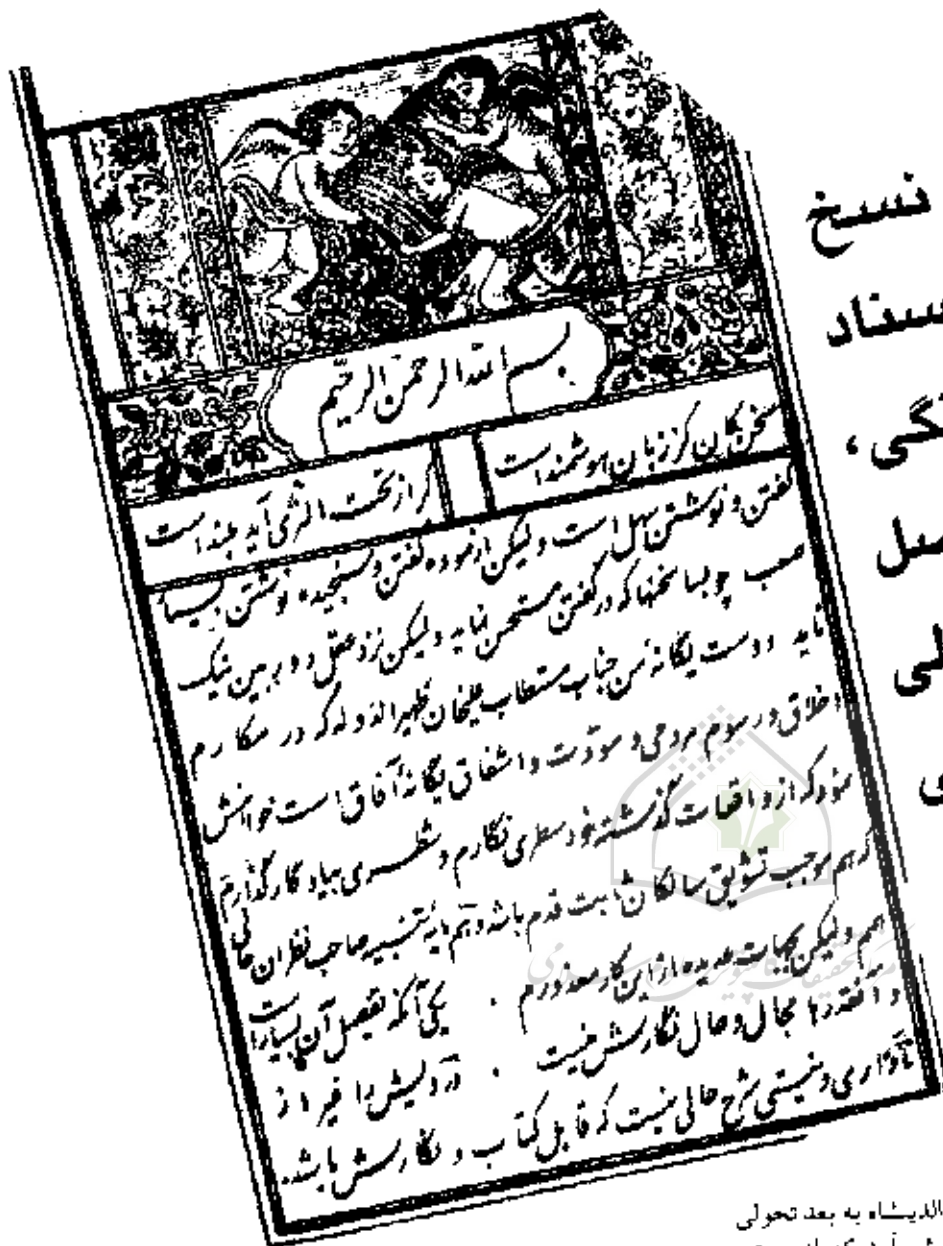 نسخ
سناد
نگی،
صل
لی
ی
بسم الله الرحمن الرحیم
سخن کان کز زبان هوشمند است
گر از تحت الثری آید بلند است
گفتن و نوشتن سهل است ولیکن ازموده گفتن و سنجیده نوشتن بسیار
صعب چو بسا سخنها که در گفتن مستحسن نماید ولیکن نزد عقل دوربین نیک
نماید دوست یگانه من جناب مستطاب علیخان ظهیرالدوله که در مکارم
اخلاق و رسوم مردمی و مودت و اشفاق یگانهٔ آفاق است خواهش
نمود که از واقعات گذشته خود سطری نگارم و شطری بیادگار گذارم
که هم موجب تشویق سالکان ثابت قدم باشد و هم مایهٔ تنبیه صاحب نظران عالی
همم ولیکن بجهات عدیده از این کار معذورم . یکی آنکه تفصیل آن بسیار است
و آنقدرها مجال و حال نگارش نیست . درویش را غیر از
ناداری و نیستی شرح حالی نیست که قابل کتاب و نگارش باشد.
مرکز تحقیقات کامپیوتری علوم اسلامی
الدینشاه به بعد تحولی